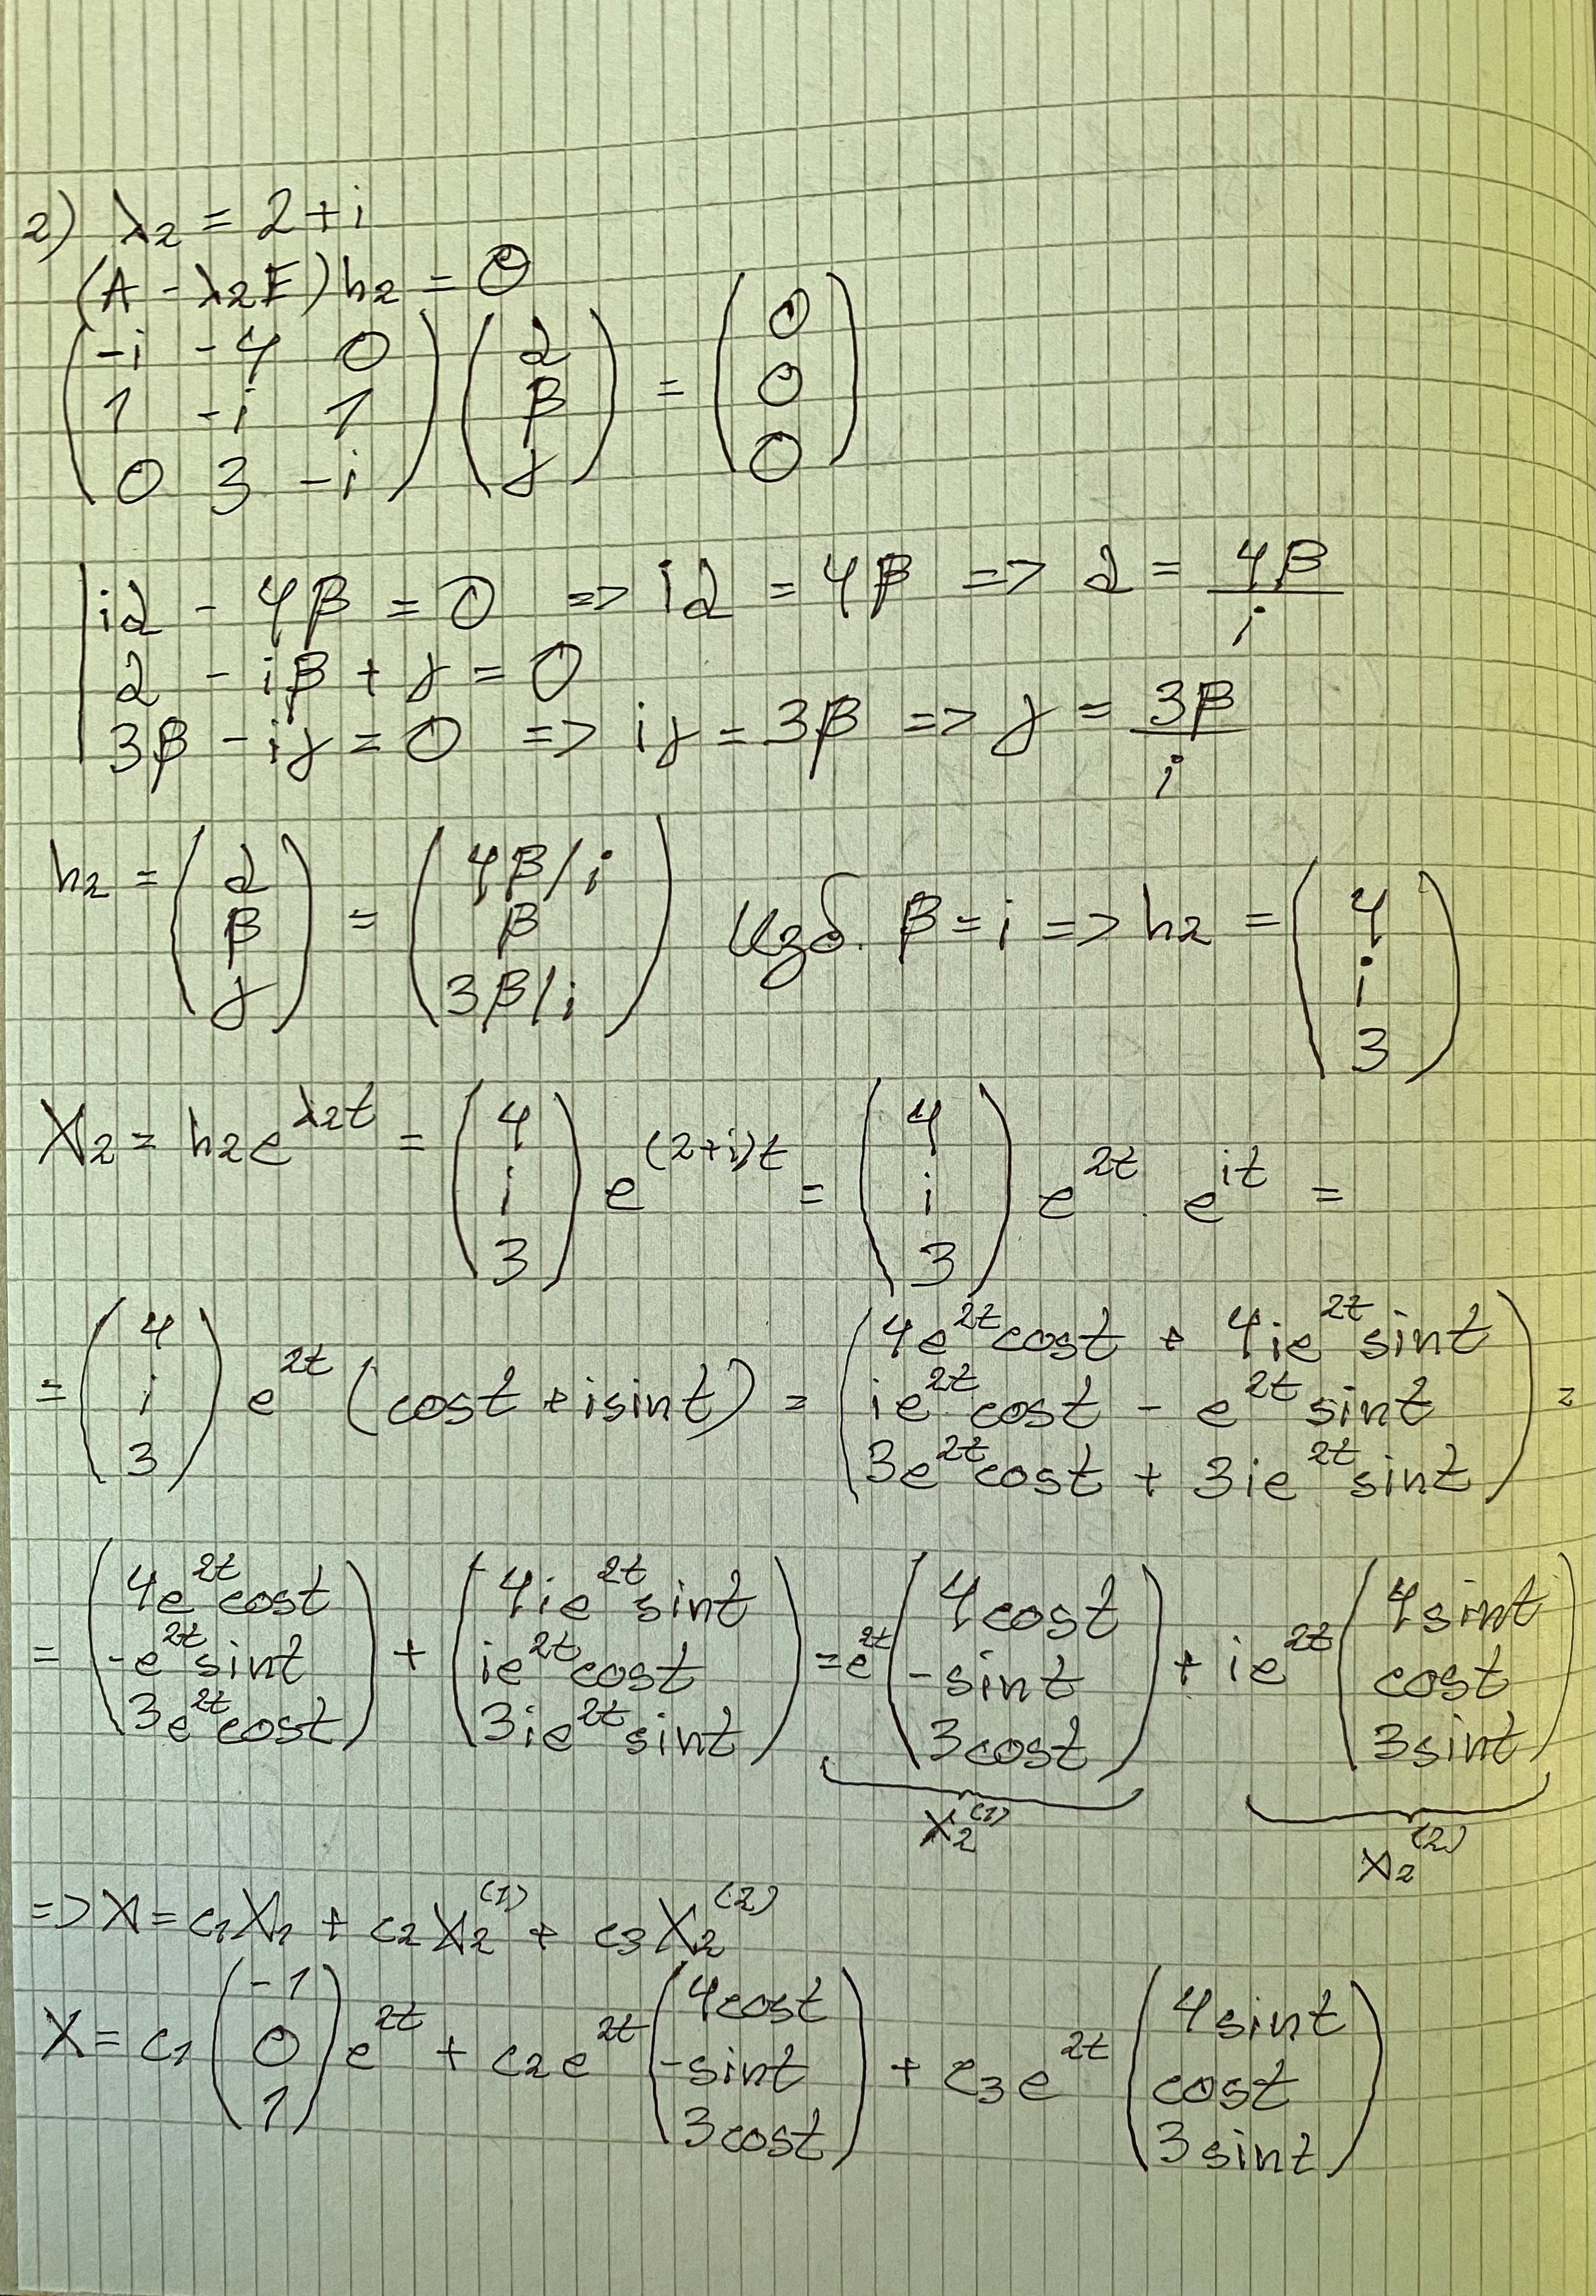 2) λ2 = 2+i
(A - λ2E)h2 = 0
(-i -4 0; 1 -i 1; 0 3 -i) (α; β; γ) = (0; 0; 0)
| iα - 4β = 0 => iα = 4β => α = 4β/i
| α - iβ + γ = 0
| 3β - iγ = 0 => iγ = 3β => γ = 3β/i
h2 = (α; β; γ) = (4β/i; β; 3β/i) Изб. β = i => h2 = (4; i; 3)
X2 = h2e^λ2t = (4; i; 3) e^(2+i)t = (4; i; 3) e^2t . e^it =
= (4; i; 3) e^2t (cost + isint) = (4e^2t cost + 4ie^2t sint; ie^2t cost - e^2t sint; 3e^2t cost + 3ie^2t sint) =
= (4e^2t cost; -e^2t sint; 3e^2t cost) + (4ie^2t sint; ie^2t cost; 3ie^2t sint) = e^2t (4cost; -sint; 3cost) + ie^2t (4sint; cost; 3sint)
X2^(1) X2^(2)
=> X = c1X1 + c2X2^(1) + c3X2^(2)
X = c1 (-1; 0; 1) e^2t + c2e^2t (4cost; -sint; 3cost) + c3e^2t (4sint; cost; 3sint)